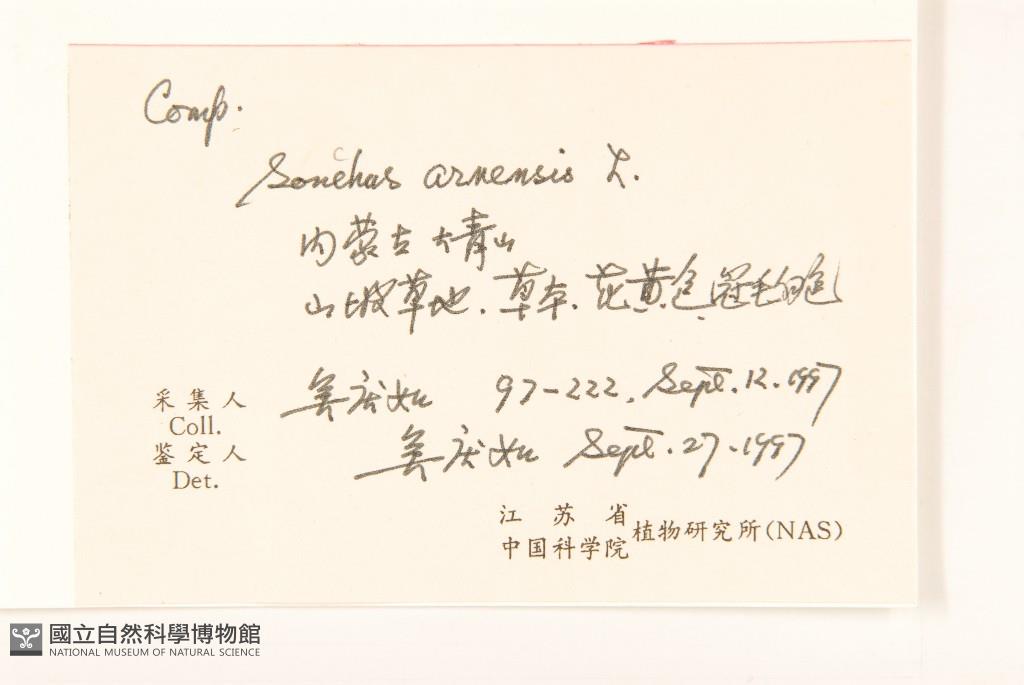 Comp.
Sonchus arvensis L.
内蒙古大青山
山坡草地.草本.花黄色,冠毛白色
采集人 姜庆如 97-222, Sept.12.1997
Coll.
鉴定人 姜庆如 Sept.27.1997
Det.
江苏省
中国科学院 植物研究所(NAS)
國立自然科學博物館
NATIONAL MUSEUM OF NATURAL SCIENCE